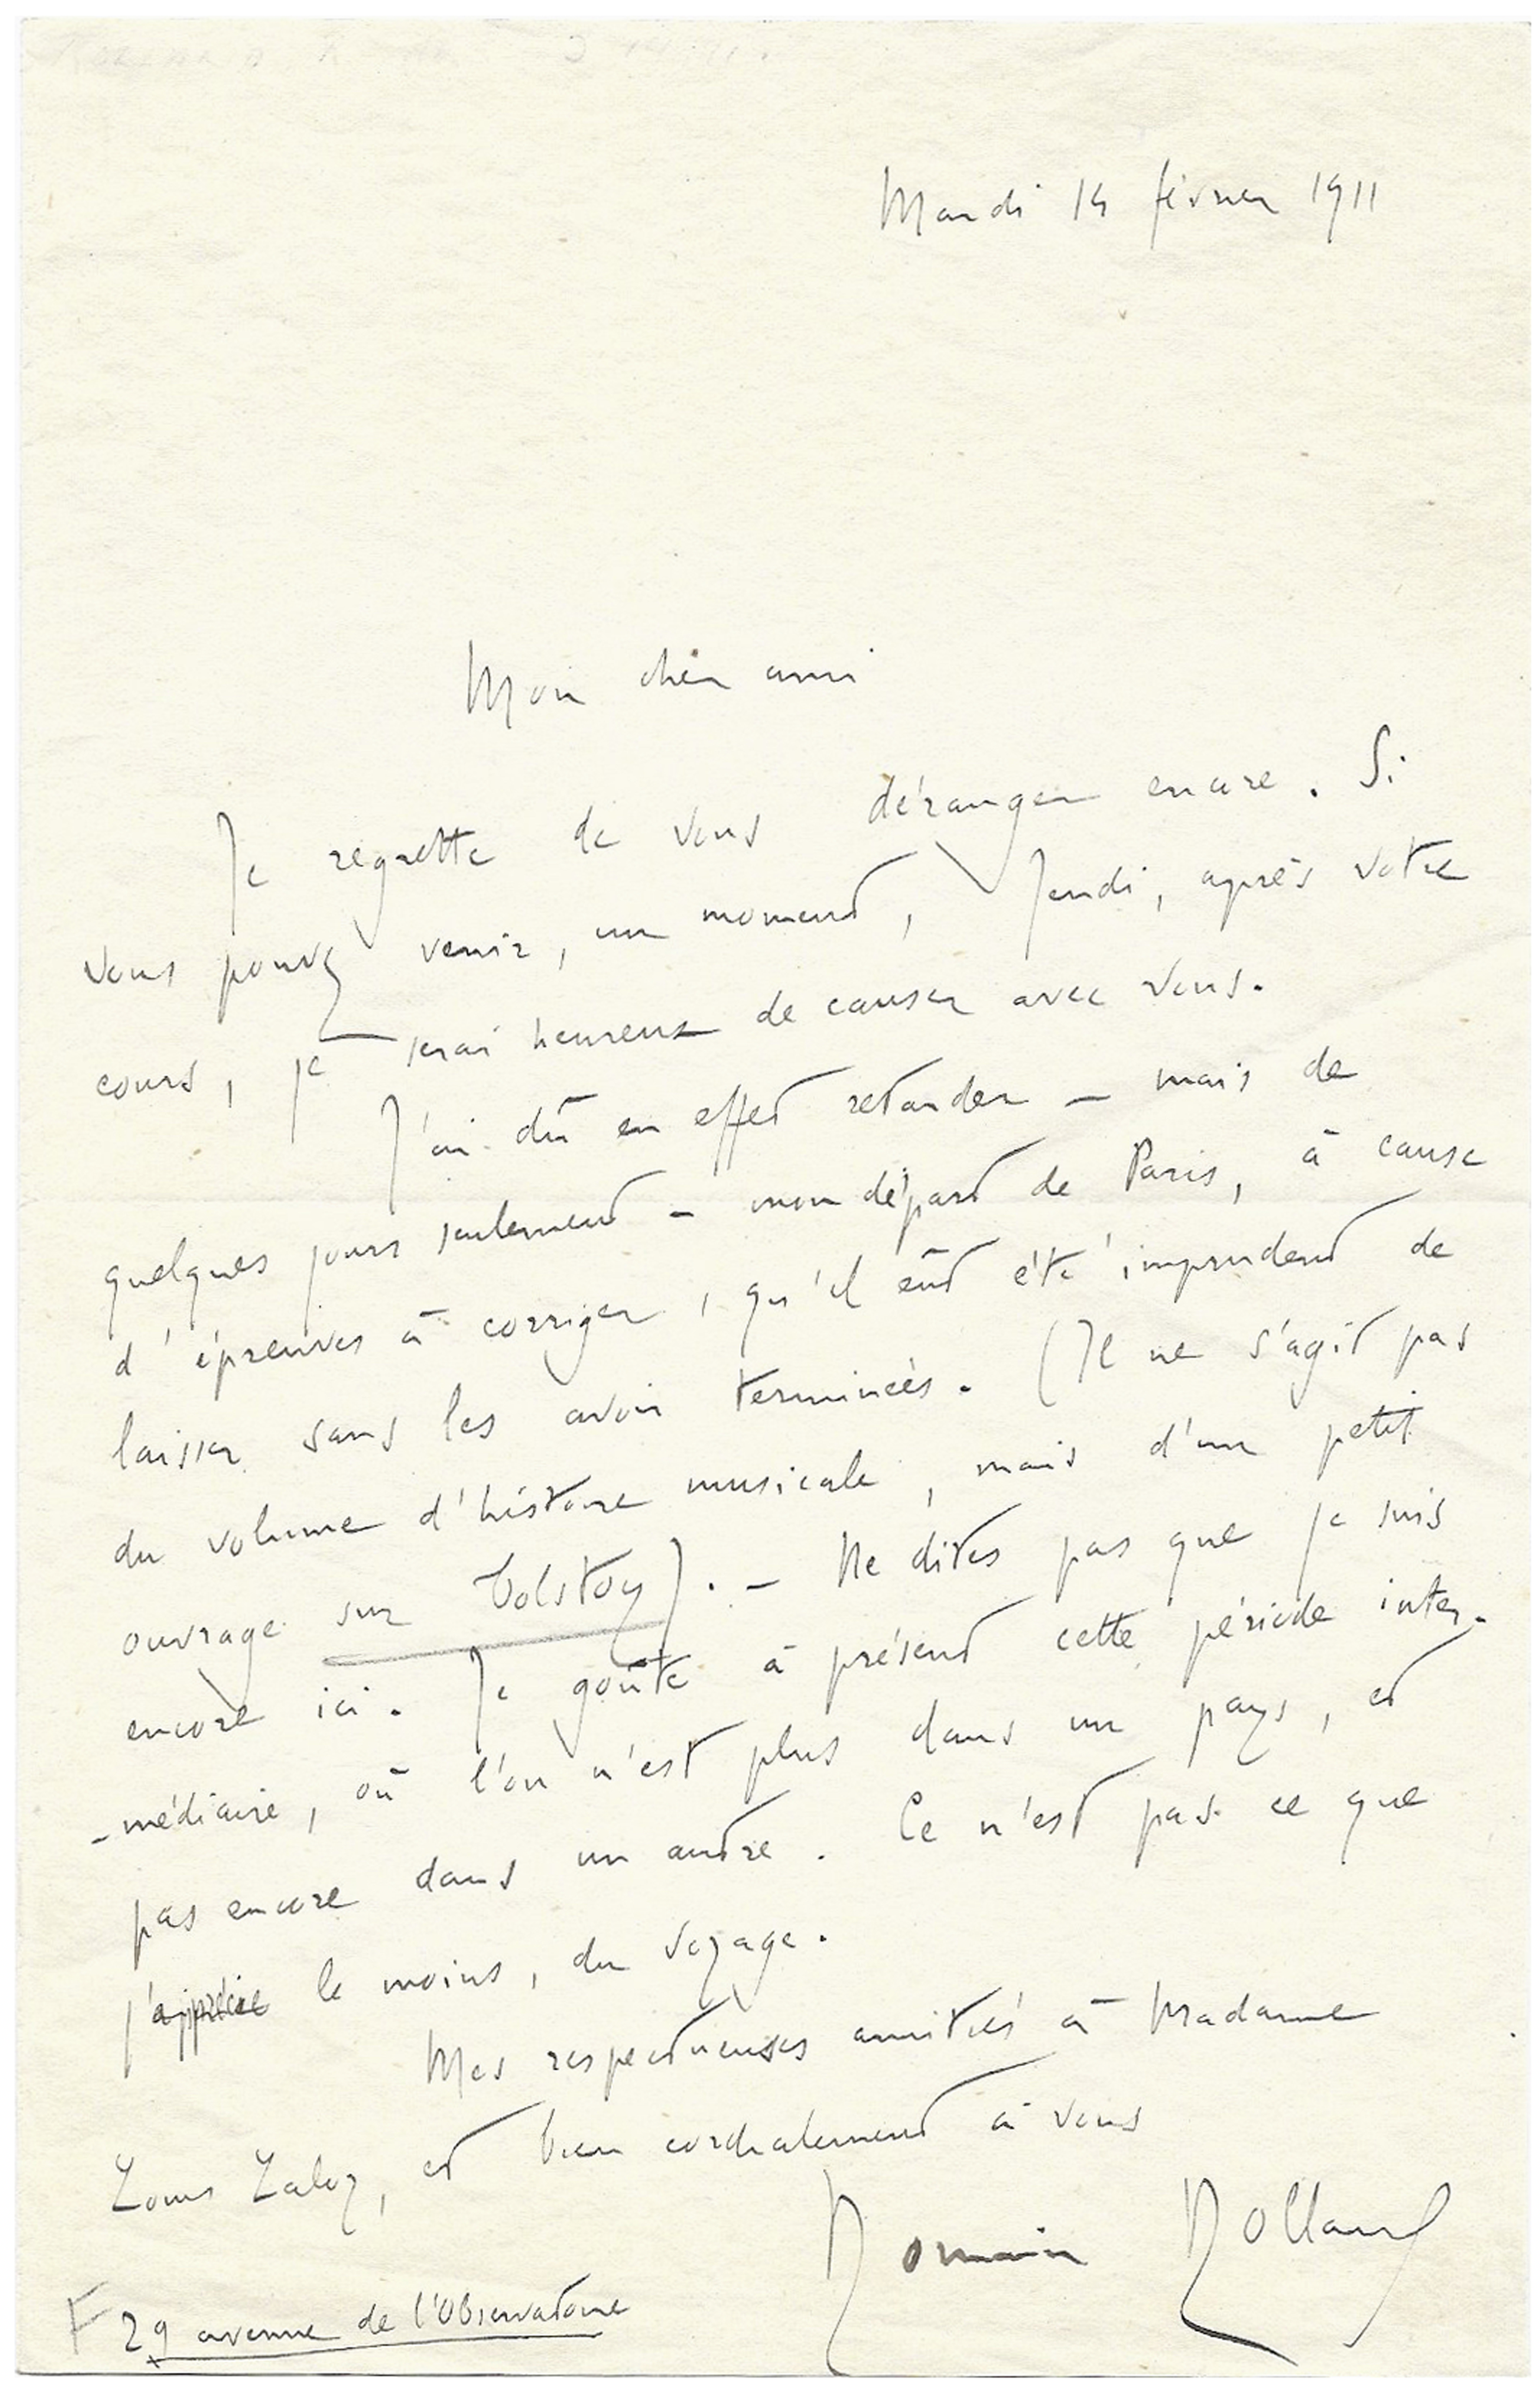 Mardi 14 février 1911
Mon cher ami
Je regrette de vous déranger encore. Si
vous pouvez venir, un moment, Jeudi, après votre
cours, je serai heureux de causer avec vous.
J'ai dû en effet retarder – mais de
quelques jours seulement – mon départ de Paris, à cause
d'épreuves à corriger, qu'il eût été imprudent de
laisser sans les avoir terminées. (Il ne s'agit pas
du volume d'histoire musicale, mais d'un petit
ouvrage sur Tolstoy). – Ne dites pas que je suis
encore ici. Je goûte à présent cette période inter-
-médiaire, où l'on n'est plus dans un pays, et
pas encore dans un autre. Ce n'est pas ce que
j'apprécie le moins, du voyage.
Mes respectueuses amitiés à Madame
Louis Laloy, et bien cordialement à vous
Romain Rolland
29 avenue de l'Observatoire